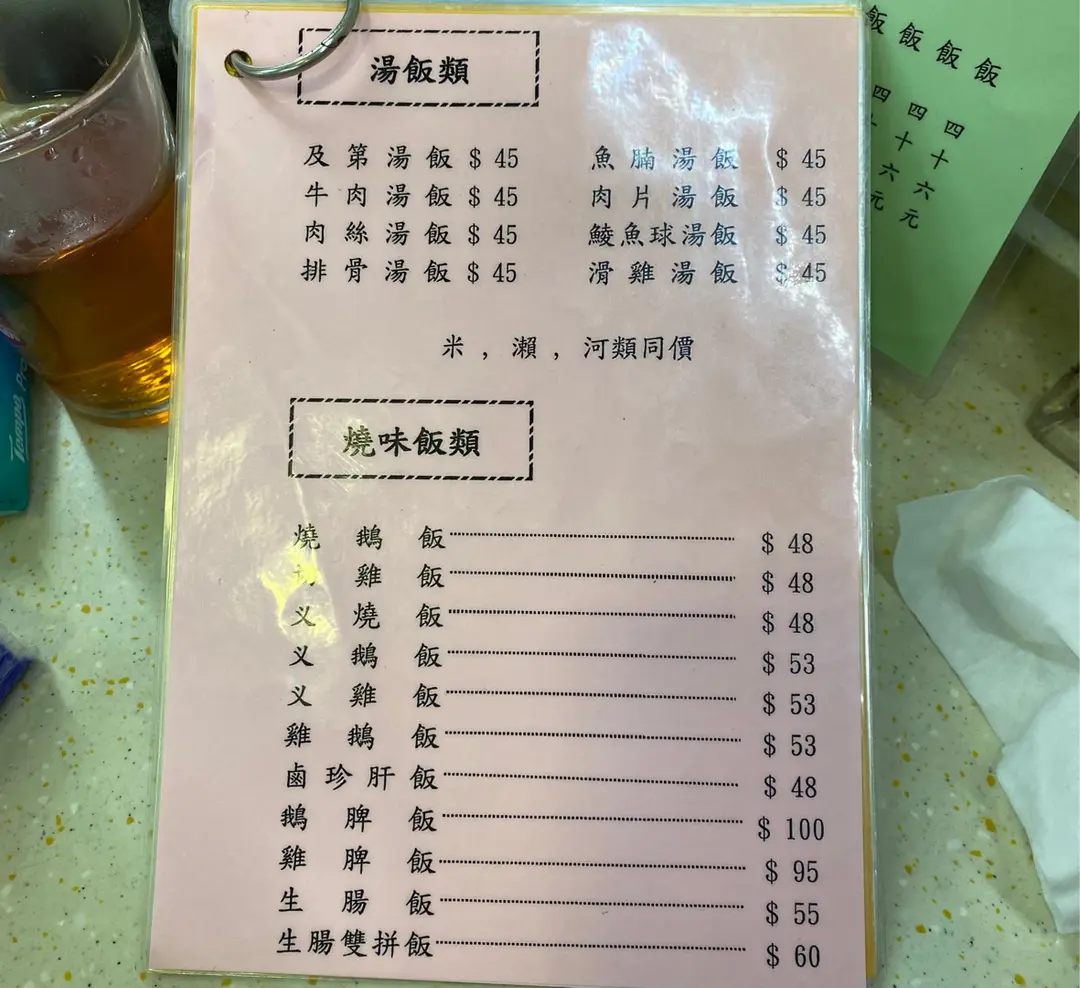 湯飯類
及第湯飯 $ 45 魚腩湯飯 $ 45
牛肉湯飯 $ 45 肉片湯飯 $ 45
肉絲湯飯 $ 45 鯪魚球湯飯 $ 45
排骨湯飯 $ 45 滑雞湯飯 $ 45
米 , 瀨 , 河類同價
燒味飯類
燒鵝飯 $ 48
切雞飯 $ 48
义燒飯 $ 48
义鵝飯 $ 53
义雞飯 $ 53
雞鵝飯 $ 53
鹵珍肝飯 $ 48
鵝脾飯 $ 100
雞脾飯 $ 95
生腸飯 $ 55
生腸雙拼飯 $ 60
飯 四十六元
飯 四十六元
Tempo